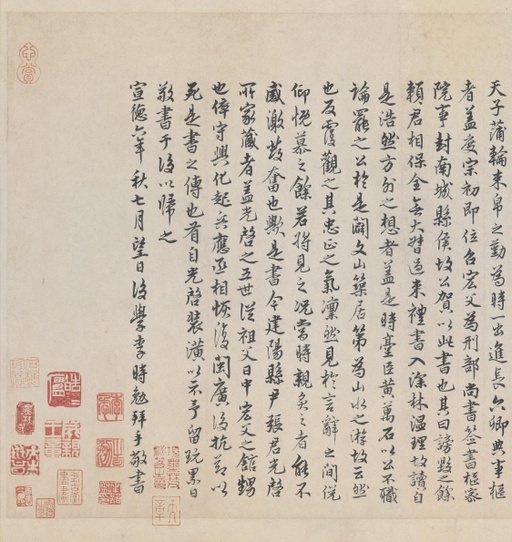 天子蒲輪束帛之勤為時一出進長六卿典事樞
者蓋度宗初即位召宏父為刑部尚書簽書樞密
院事封南城縣侯故公賀以此書也其曰謗毀之餘
賴君相保全無大督過束禮書入深林溫理故讀自
是浩然方外之想者蓋是時臺臣黃萬石以公不職
論罷之公於是闢文山築居第為山水之游故云然
也反覆觀之其忠正之氣凜然見於言辭之間俛
仰慨慕之餘若將見之況當時親炙之者能不
感激發奮也歟是書今建陽縣尹張君光啓
所家藏者蓋光啓之五世從祖父日中宏父之館甥
也倅守興化起兵應丞相恢復閩廣後抗節以
死是書之傳也有自光啓裝潢以示予留玩累日
敬書于後以歸之
宣德六年秋七月望日後學李時勉拜手敬書
心賞